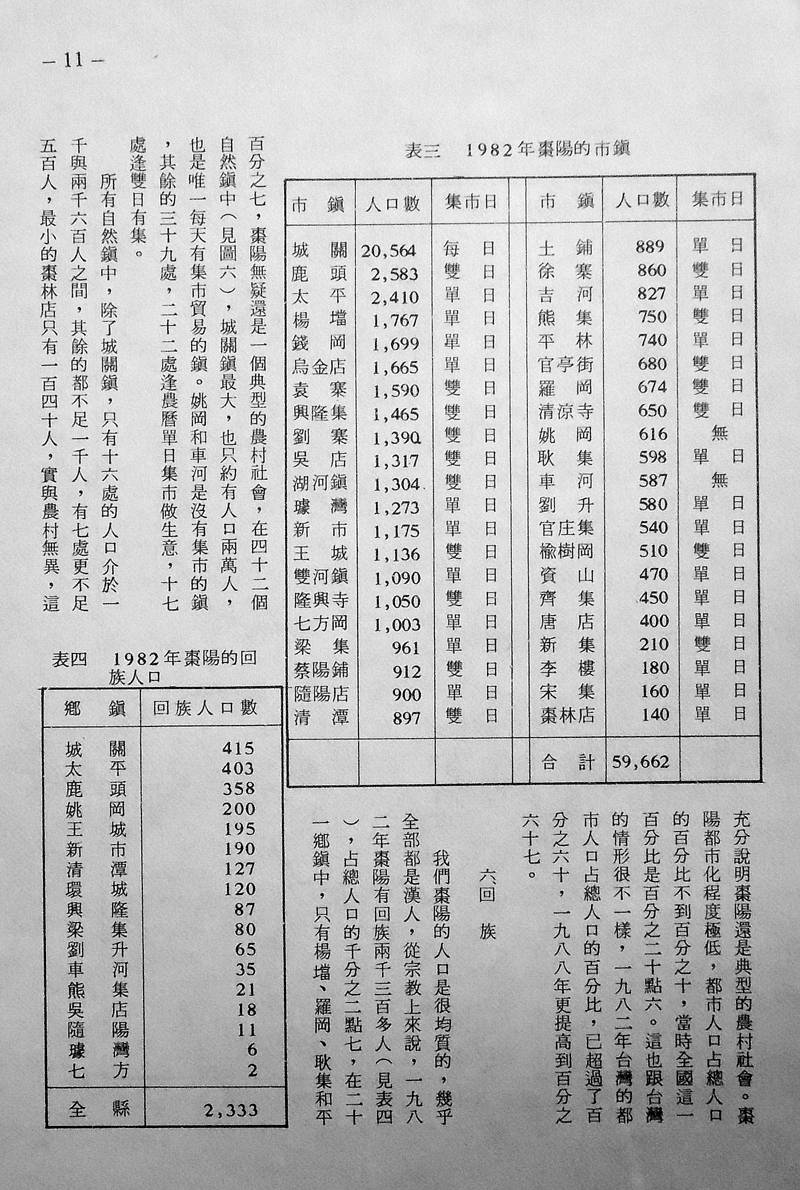 – 11 –
表三 1982年棗陽的市鎮
市鎮 人口數 集市日 市鎮 人口數 集市日
城關 20,564 每日 土鋪 889 單日
鹿頭 2,583 雙日 徐寨 860 雙日
太平 2,410 單日 吉河 827 單日
楊壋 1,767 單日 熊集 750 雙日
錢岡 1,699 單日 平林 740 單日
烏金店 1,665 單日 官亭街 680 雙日
袁寨 1,590 雙日 羅岡 674 雙日
興隆集 1,465 雙日 清涼寺 650 雙日
劉寨 1,390 雙日 姚岡 616 無
吳店 1,317 雙日 耿集 598 單日
湖河鎮 1,304 雙日 車河 587 無
璩灣 1,273 單日 劉升 580 單日
新市 1,175 單日 官庄集 540 單日
王城 1,136 雙日 楡樹岡 510 雙日
雙河鎮 1,090 單日 資山 470 單日
隆興寺 1,050 雙日 齊集 450 單日
七方岡 1,003 單日 唐店 400 單日
梁集 961 單日 新集 210 雙日
蔡陽鋪 912 雙日 李樓 180 單日
隨陽店 900 單日 宋集 160 單日
清潭 897 雙日 棗林店 140 單日
合計 59,662
百分之七，棗陽無疑還是一個典型的農村社會，在四十二個
自然鎮中（見圖六），城關鎮最大，也只約有人口兩萬人，
也是唯一每天有集市貿易的鎮。姚岡和車河是沒有集市的鎮
，其餘的三十九處，二十二處逢農曆單日集市做生意，十七
處逢雙日有集。
所有自然鎮中，除了城關鎮，只有十六處的人口介於一
千與兩千六百人之間，其餘的都不足一千人，有七處更不足
五百人，最小的棗林店只有一百四十人，實與農村無異，這
充分說明棗陽還是典型的農村社會。棗
陽都市化程度極低，都市人口占總人口
的百分比不到百分之十，當時全國這一
百分比是百分之二十點六。這也跟台灣
的情形很不一樣，一九八二年台灣的都
市人口占總人口的百分比，已超過了百
分之六十，一九八八年更提高到百分之
六十七。
六回族
我們棗陽的人口是很均質的，幾乎
全部都是漢人，從宗教上來說，一九八
二年棗陽有回族兩千三百多人（見表四
），占總人口的千分之二點七，在二十
一鄉鎮中，只有楊壋、羅岡、耿集和平
表四 1982年棗陽的回
族人口
鄉鎮 回族人口數
城關 415
太平 403
鹿頭 358
姚岡 200
王城 195
新市 190
清潭 127
環城 120
興隆 87
梁集 80
劉升 65
車河 35
熊集 21
吳店 18
隨陽 11
璩灣 6
七方 2
全縣 2,333